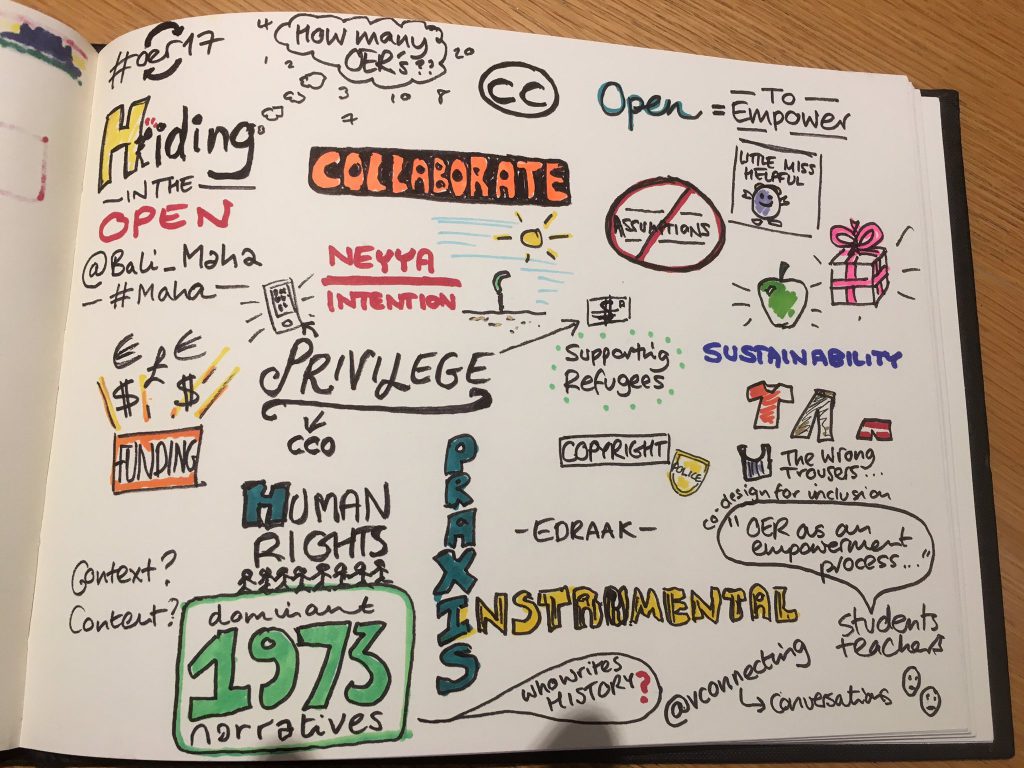 #oer17
How many
OER's??
4
1
2
3
7
10
8
20
8
CC
Open = To
Empower
Hiding
IN THE
OPEN
@Bali_Maha
#Maha
COLLABORATE
NEYYA
INTENTION
ASSUMPTIONS
LITTLE MISS
HELPFUL
€ £ €
$ $
FUNDING
PRIVILEGE
CC0
$
Supporting
Refugees
SUSTAINABILITY
The Wrong
Trousers...
co-design for inclusion
COPYRIGHT
POLICE
PRAXIS
INSTRUMENTAL
HUMAN
RIGHTS
- EDRAAK -
"OER as an
empowerment
process..."
students
teachers
Context?
Content?
dominant
1973
narratives
who writes
HISTORY?
@vconnecting
↳ conversations